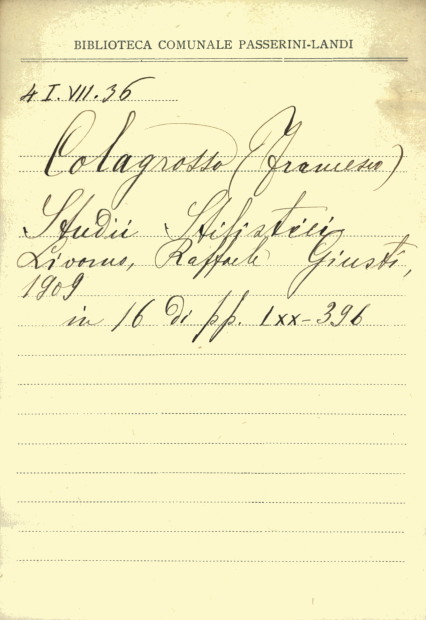 BIBLIOTECA COMUNALE PASSERINI-LANDI
4 I. VII. 36
Colagrosso (Francesco)
Studii Stilistici
Livorno, Raffaele Giusti,
1909
in 16 di pp. LXX-396